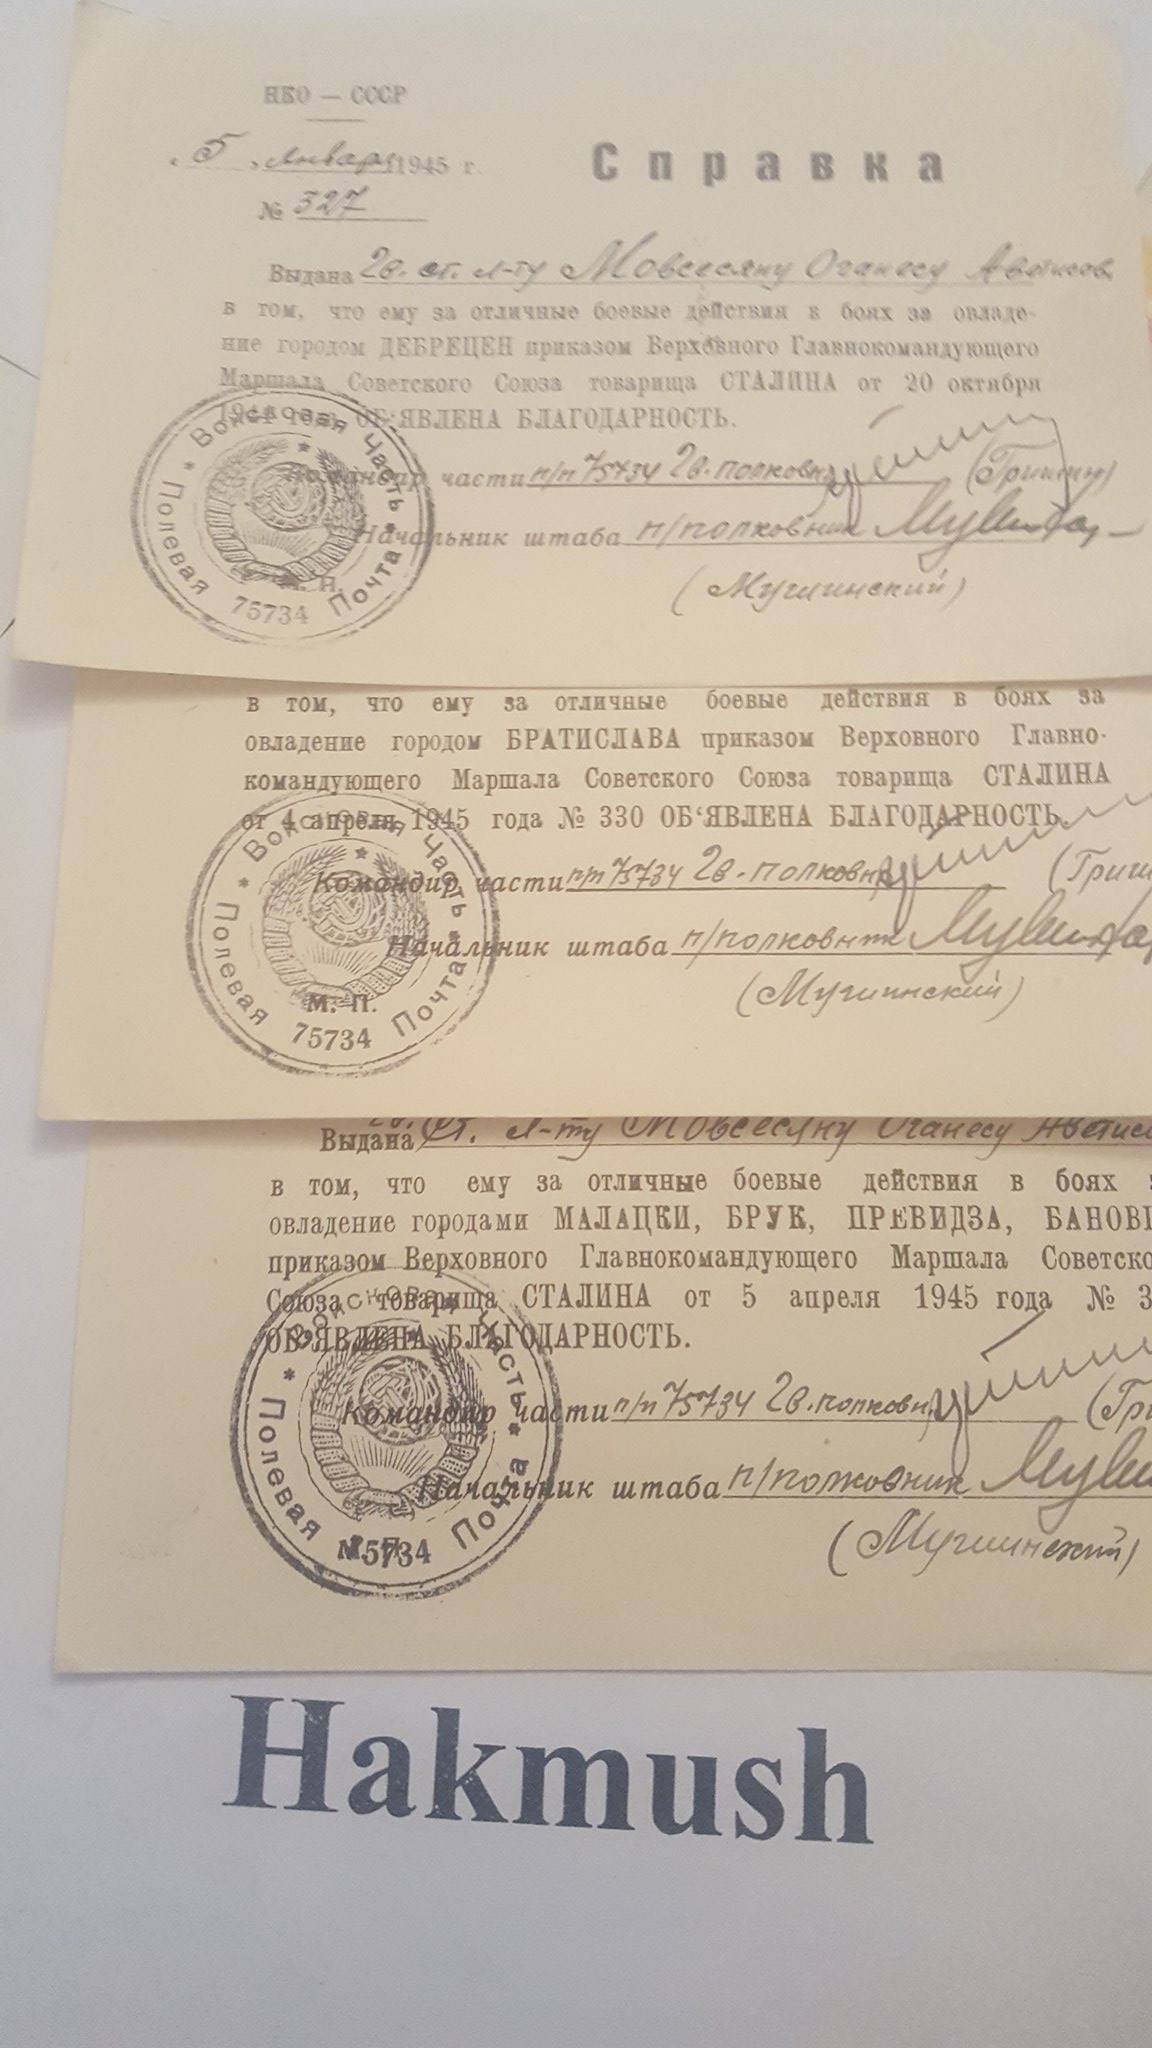 НКО — СССР
„ 5 „ января 1945 г.
Справка
№ 327
Выдана гв. ст. л-ту Мовсесяну Оганесу Аветисов.
в том, что ему за отличные боевые действия в боях за овладе-
ние городом ДЕБРЕЦЕН приказом Верховного Главнокомандующего
Маршала Советского Союза товарища СТАЛИНА от 20 октября
1944 года ОБ‘ЯВЛЕНА БЛАГОДАРНОСТЬ.
Командир части п/п 75734 гв. полковник (Гришин)
Начальник штаба п/полковник
(Мучлинский)
Войсковая Часть * Полевая Почта * 75734
в том, что ему за отличные боевые действия в боях за
овладение городом БРАТИСЛАВА приказом Верховного Главно-
командующего Маршала Советского Союза товарища СТАЛИНА
от 4 апреля 1945 года № 330 ОБ‘ЯВЛЕНА БЛАГОДАРНОСТЬ.
Командир части п/п 75734 гв. полковник (Гриш
Начальник штаба п/полковник
(Мучлинский)
М. П.
Войсковая Часть * Полевая Почта * 75734
Выдана гв. ст. л-ту Мовсесяну Оганесу Аветисо
в том, что ему за отличные боевые действия в боях
овладение городами МАЛАЦКИ, БРУК, ПРЕВИДЗА, БАНОВ
приказом Верховного Главнокомандующего Маршала Советско
Союза товарища СТАЛИНА от 5 апреля 1945 года № 3
ОБ‘ЯВЛЕНА БЛАГОДАРНОСТЬ.
Командир части п/п 75734 гв. полковник (Гри
Начальник штаба п/полковник
(Мучлинский)
Войсковая Часть * Полевая Почта * 75734
Hakmush